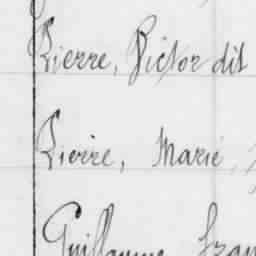 Pierre, Victor dit
Pierre, Marie,
Guillaume Fran